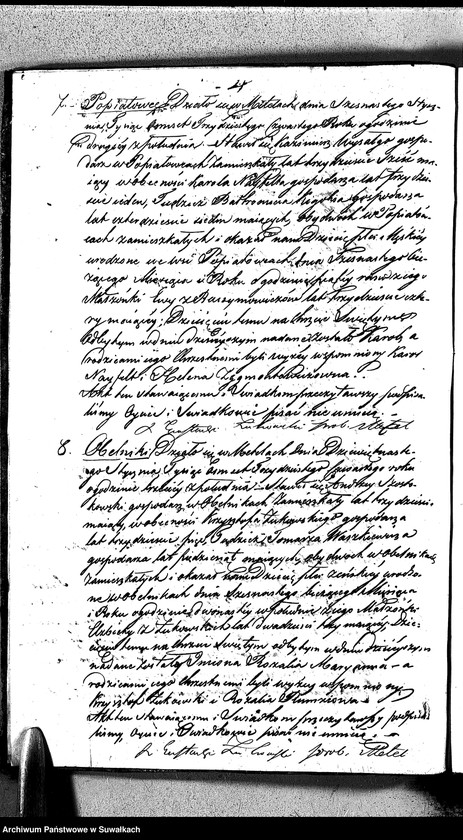 - 4 -
7. Popiatowce Działo się w Metelach dnia Szesnastego Stycz=
nia, Tysiąc Osmset Trzydziestego Czwartego Roku o godzinie
drugiey z południa. Stawił się Kazimierz gospo=
darz w Popiatowcach zamieszkały lat trzydzieści Trzi ma=
iący w obecności Karola Nayfelta gospodarza lat trzydzie=
ści siedm, Tudzież gospodarza
lat czterdzieści siedm maiących, obydwóch w Popiatow=
cach zamieszkałych i okazał nam Dziecię płci Męskiey
urodzone we wsi Popiatowcach dnia Szesnastego bie=
żącego Miesiąca i Roku o godzinie z iego
Małżonki lat trzydzieści czte=
ry maiącey; Dziecięciu temu na Chrzcie Świętym
odbytym w dniu dzisieyszym nadane zostało Karol, a
rodzicami iego Chrzestnemi byli wyżey wspomniony Karol
Nayfelt i Helena
Akt ten stawaiącemu i Świadkom przeczytawszy podpisa=
liśmy Oyciec i Świadkowie pisać nie umieią. -
X. prob. Metel
8. Obelniki Działo się w Metelach Dnia Dziewiętnaste=
go Stycznia, Tysiąc Osmset Trzydziestego Czwartego roku
o godzinie trzeciey z południa - Stawił się Andrzey
gospodarz w Obelnikach zamieszkały lat trzydzieści
maiący, w obecności Krzysztofa Żukowskiego gospodarza
lat trzydzieści pięć, Tudzież Tomasza Waszkiewicza
gospodarza lat pięćdziesiąt maiących, obydwóch w Obelnikach
zamieszkałych i okazał nam Dziecię płci żeńskiey urodzo=
ne w Obelnikach dnia Szesnastego bieżącego Miesiąca
i Roku o godzinie dwunastey w południe z iego Małżonki
Elżbiety z Żukowskich lat dwadzieścia trzy maiącey, Dzie=
cięciu temu na Chrzcie Świętym odbytym w dniu dzisieyszym
nadane zostały Imiona Rozalia Maryanna - a
rodzicami iego Chrzestnemi byli wyżey wspomniony
Krzysztof Żukowski i Rozalia
Akt ten stawaiącemu i Świadkom przeczytawszy podpisa=
liśmy, Oyciec i Świadkowie pisać nie umieią. -
X. prob. Metel
Archiwum Państwowe w Suwałkach